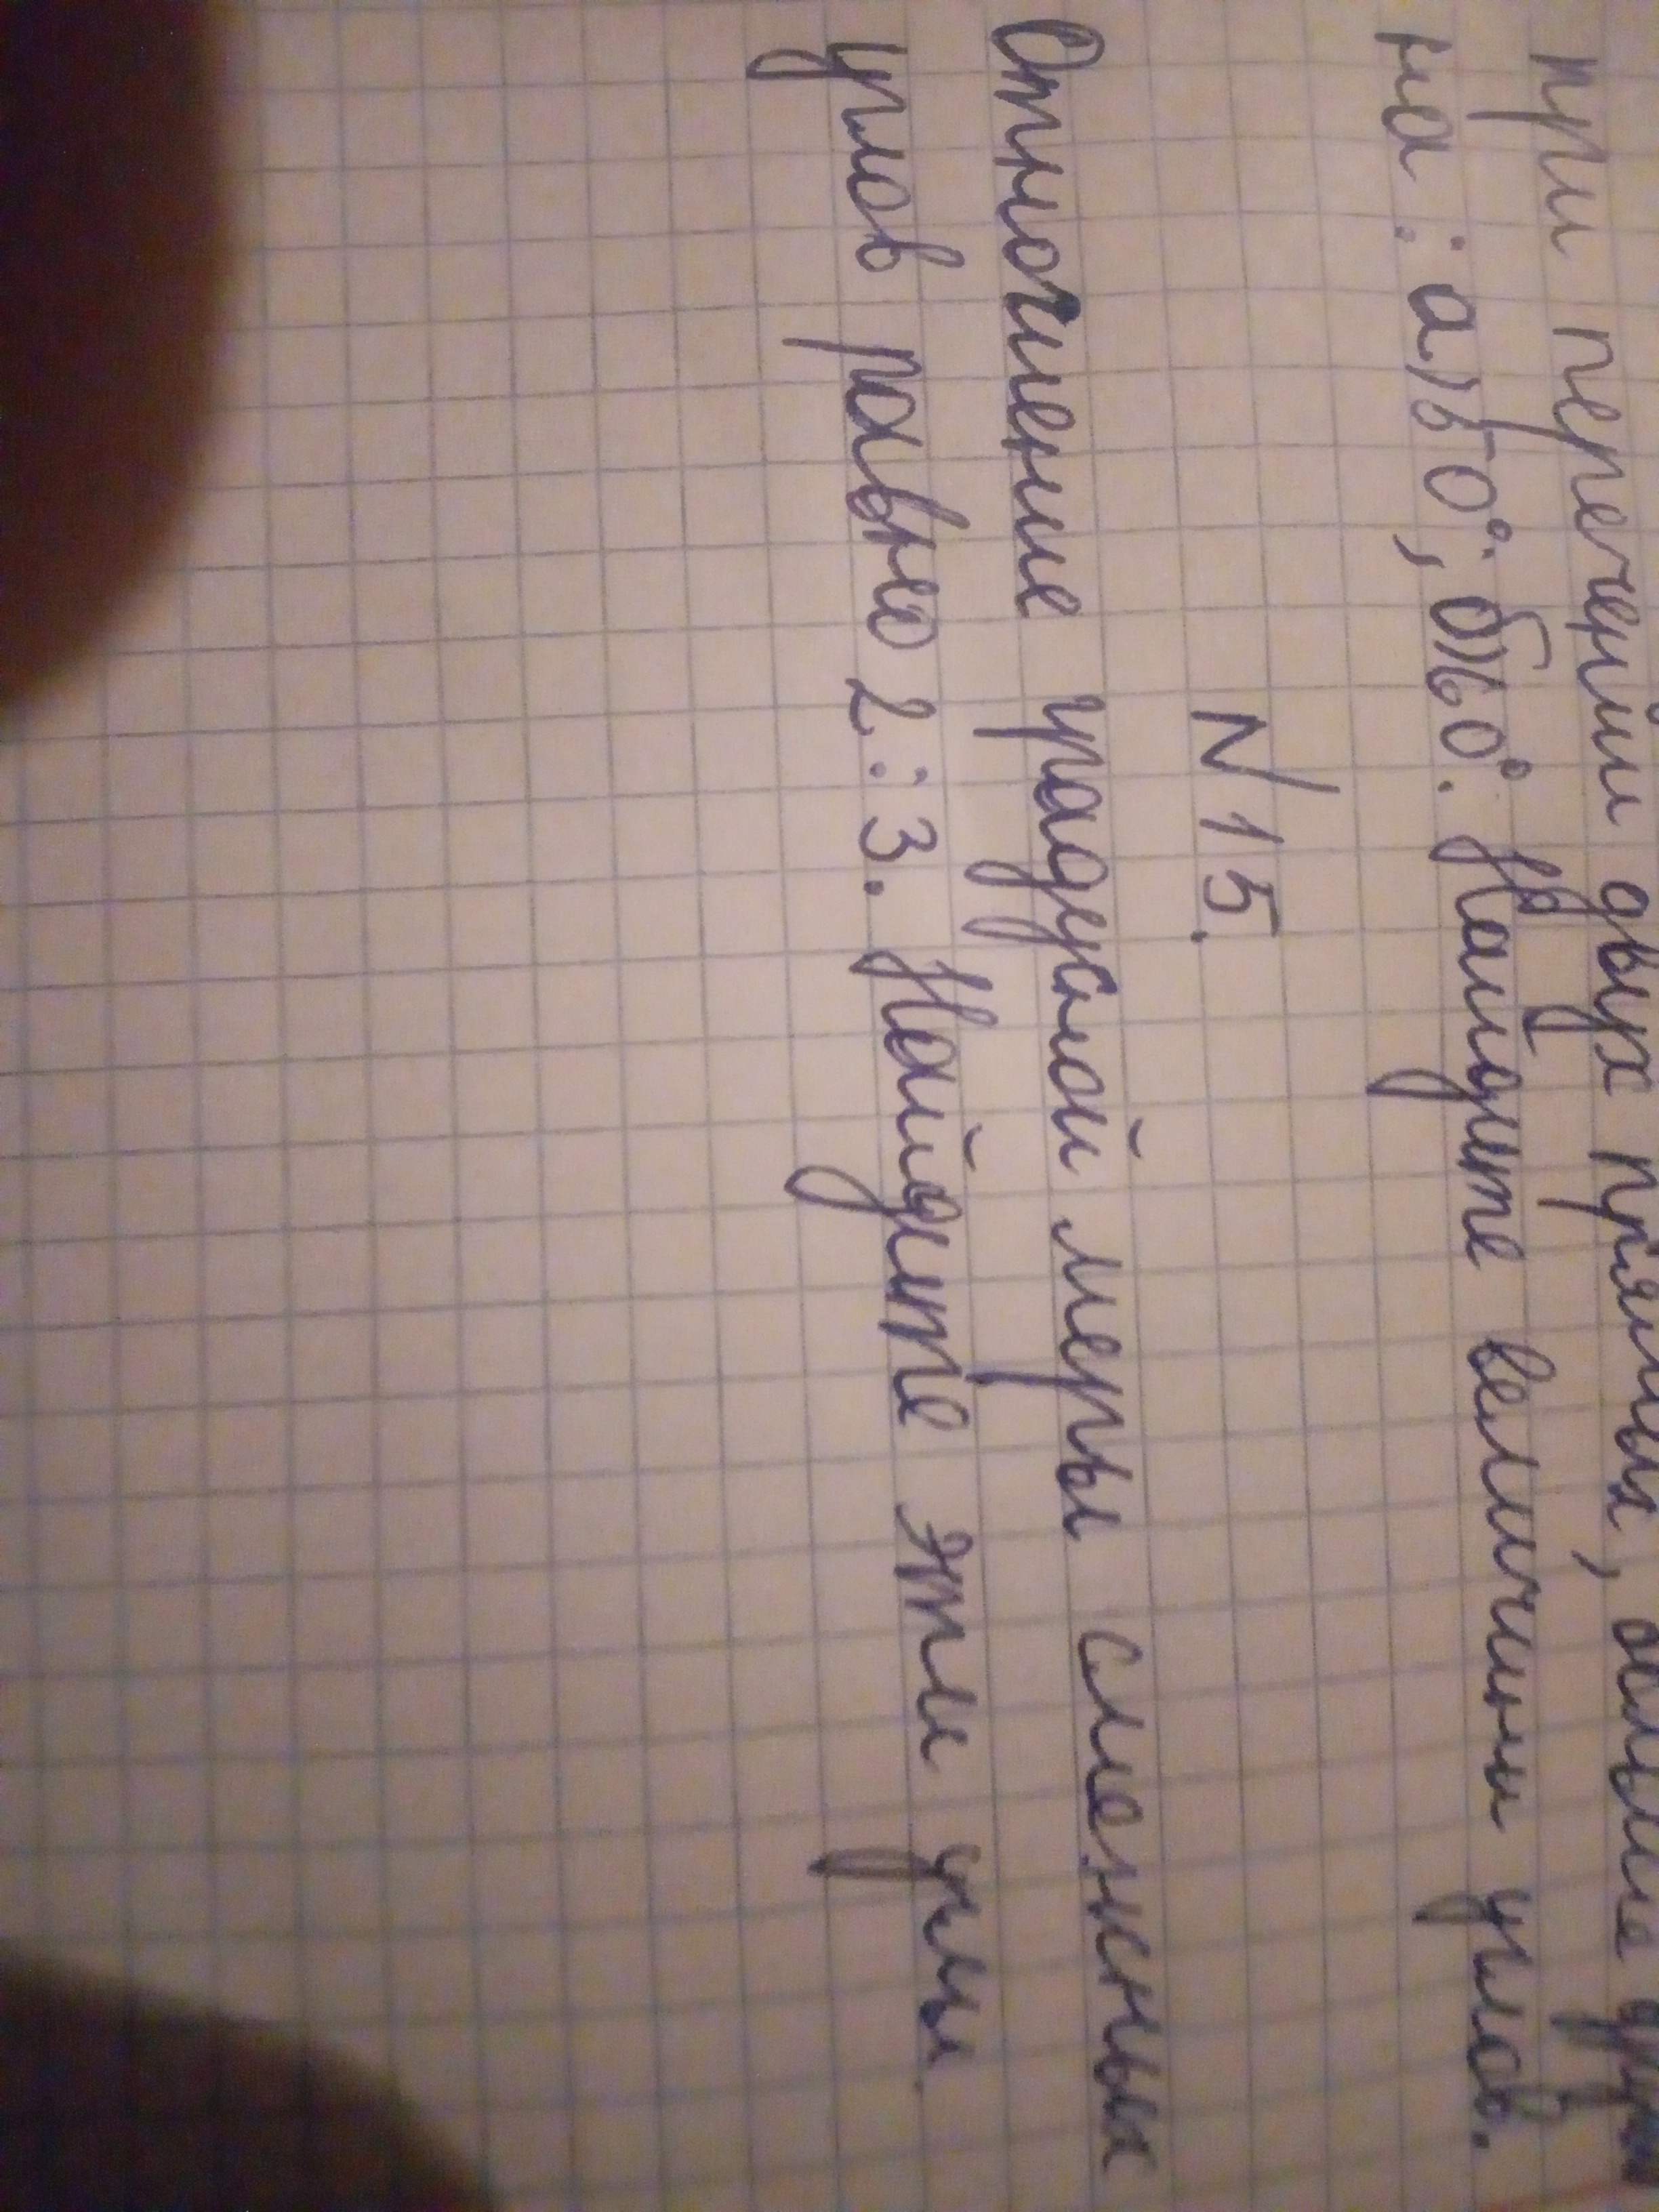 при перечении двух прямых, больше друго
на: а) 50°; б) 60°. Найдите величины углов.
N 15.
Отношение градусной меры смежных
углов равно 2:3. Найдите эти углы